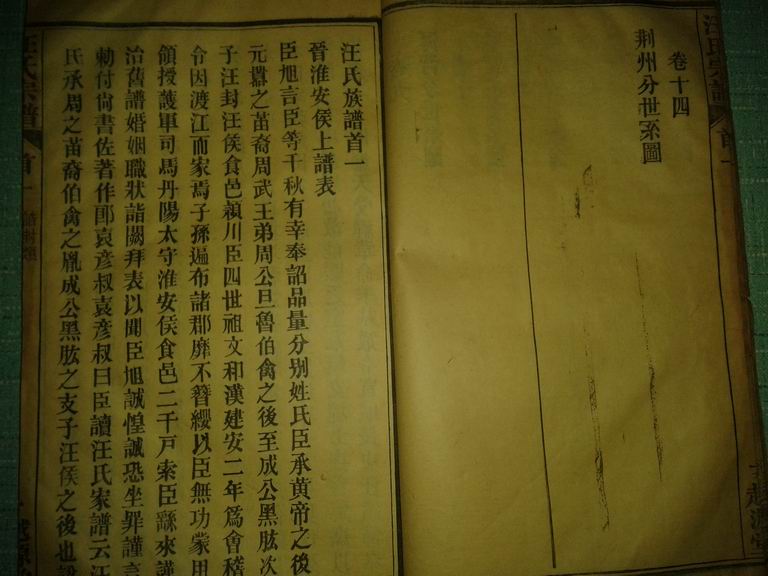 汪氏宗譜
首一
卷十四
荆州分世系圖
汪氏族譜首一
晉淮安侯上譜表
臣旭言臣等千秋有幸奉詔品量分別姓氏臣承黄帝之後
元囂之苗裔周武王弟周公旦魯伯禽之後至成公黑肱次
子汪封汪侯食邑潁川臣四世祖文和漢建安二年爲會稽
令因渡江而家焉子孫遍布諸郡靡不簪纓以臣無功蒙用
領授䕶軍司馬丹陽太守淮安侯食邑二千戸索臣繇來謹
治舊譜婚姻職狀詣闕拜表以聞臣旭誠惶誠恐坐罪謹言
勅付尙書佐著作郎袁彦叔袁彦叔曰臣讀汪氏家譜云汪
氏承周之苗裔伯禽之胤成公黑肱之支子汪侯之後也
汪氏宗譜
首一